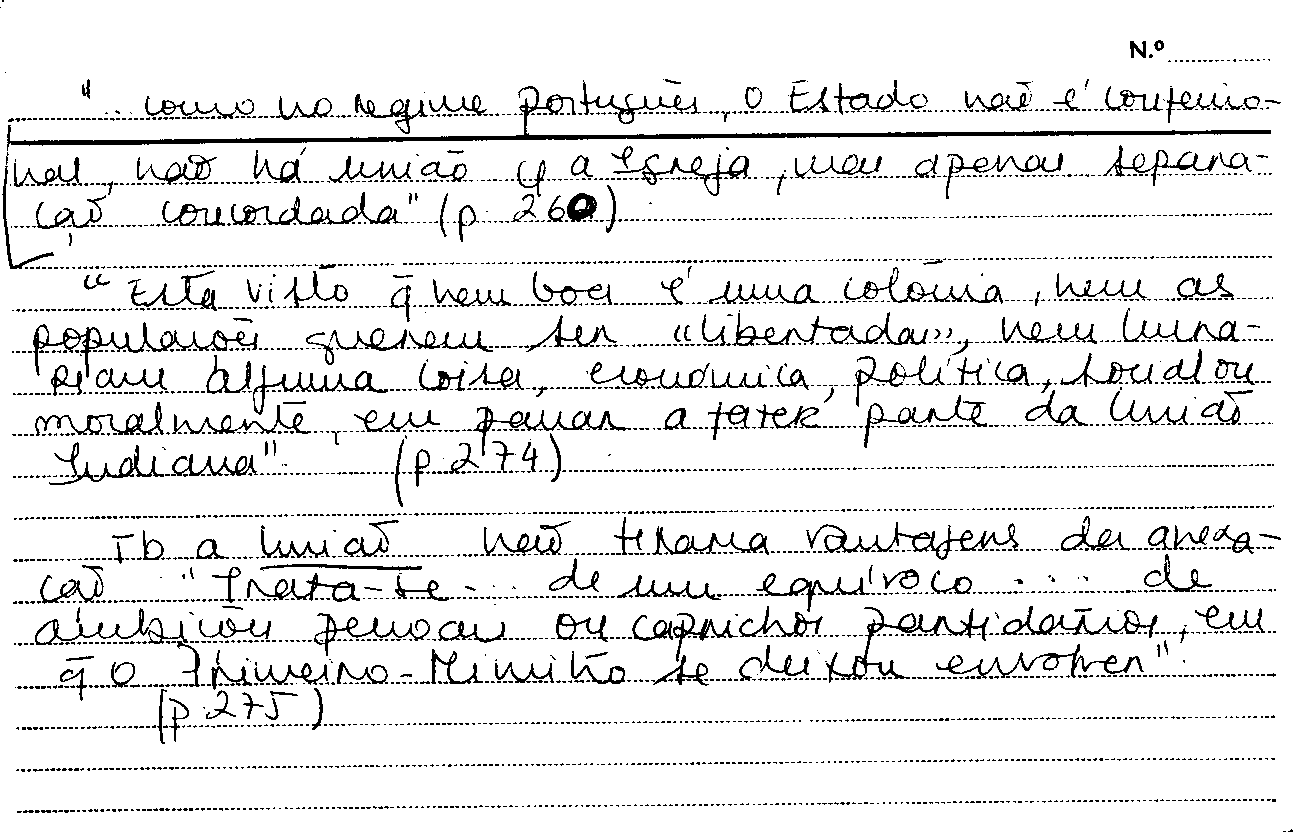 N.º
".. como no regime português, o Estado não é confessio-
nal, não há união c/ a Igreja, mas apenas separa-
ção concordada" (p. 260)
"Está visto q̃ nem Goa é uma colónia, nem as
populações querem ser «libertadas», nem lucra-
riam alguma coisa, económica, política, social ou
moralmente, em passar a fazer parte da União
Indiana". (p. 274)
Tb a União não tiraria vantagens da anexa-
ção "Trata-se... de um equívoco ... de
ambições pessoais ou caprichos partidários, em
q̃ o Primeiro-Ministro se deixou envolver".
(p. 275)